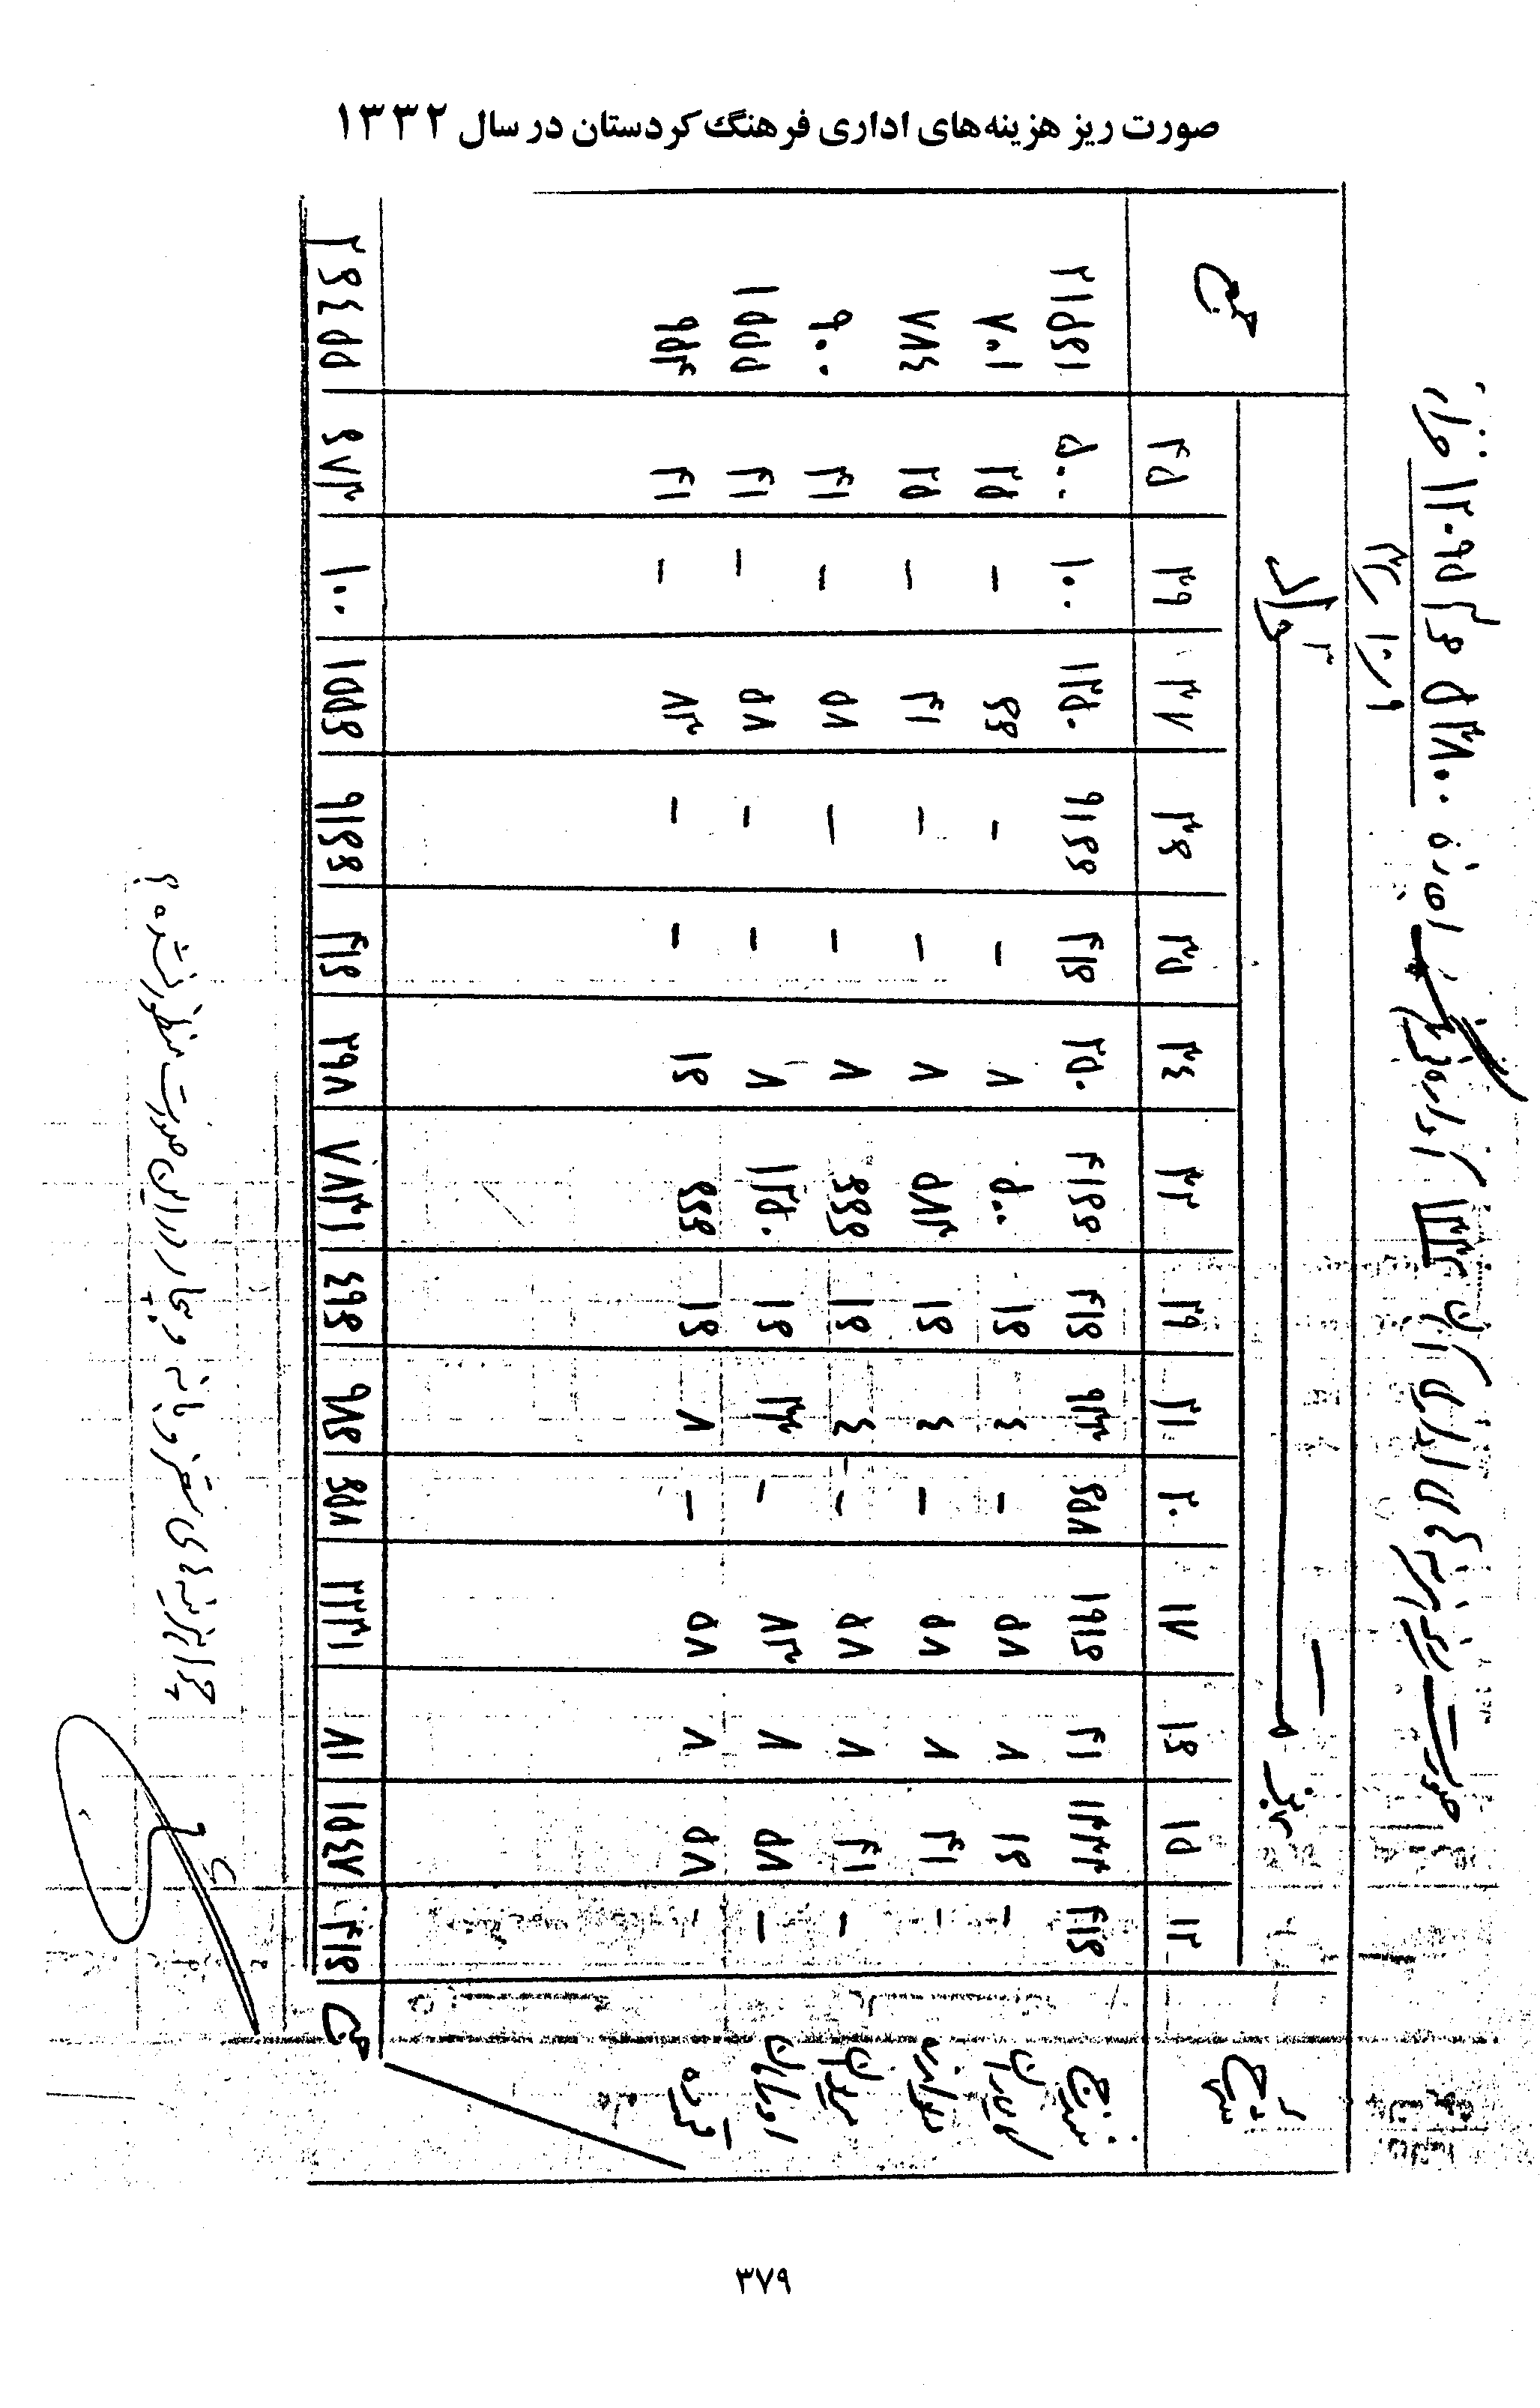 صورت ریز هزینه‌های اداری فرهنگ کردستان در سال ۱۳۳۲
صورت ریز هزینه های اداری آبان ۱۳۳۲ اداره فرهنگ اجازه
جمع
۱۲ ۱۵ ۱۶ ۱۸ ۲۰ ۲۱ ۲۹ ۳۲ ۳۴ ۳۵ ۳۶ ۳۷ ۳۹ ۴۵
سنندج ۴۱۶ ۱۳۳۳ ۴۱ ۱۹۱۶ ۶۵۸ ۹۳۳ ۴۱۶ ۴۱۶۶ ۲۵۰ ۴۱۶ ۹۱۶۶ ۱۲۵۰ ۱۰۰ ۵۰۰ ۲۱۵۶۱
کامیاران - ۱۶ ۸ ۵۸ - ۴ ۱۶ ۵۰۰ ۸ - - ۶۶ - ۲۵ ۷۰۱
دیواندره - ۴۱ ۸ ۵۸ - ۴ ۱۶ ۵۸۳ ۸ - - ۴۱ - ۲۵ ۷۸۴
مریوان - ۴۱ ۸ ۵۸ - ۴ ۱۶ ۶۶۶ ۸ - - ۵۸ - ۴۱ ۹۰۰
اورامان - ۵۸ ۸ ۸۳ - ۳۳ ۱۶ ۱۲۵۰ ۸ - - ۵۸ - ۴۱ ۱۵۵۵
قروه - ۵۸ ۸ ۵۸ - ۸ ۱۶ ۶۶۶ ۱۶ - - ۸۳ - ۴۱ ۹۵۴
جمع ۴۱۶ ۱۵۴۷ ۸۱ ۲۲۳۱ ۶۵۸ ۹۸۶ ۴۹۶ ۷۸۳۱ ۲۹۸ ۴۱۶ ۹۱۶۶ ۱۵۵۶ ۱۰۰ ۶۷۳ ۲۶۴۵۵
چرا هزینه های سقز و بانه و بیجار در این صورت منظور نشده ؟
۳۷۹